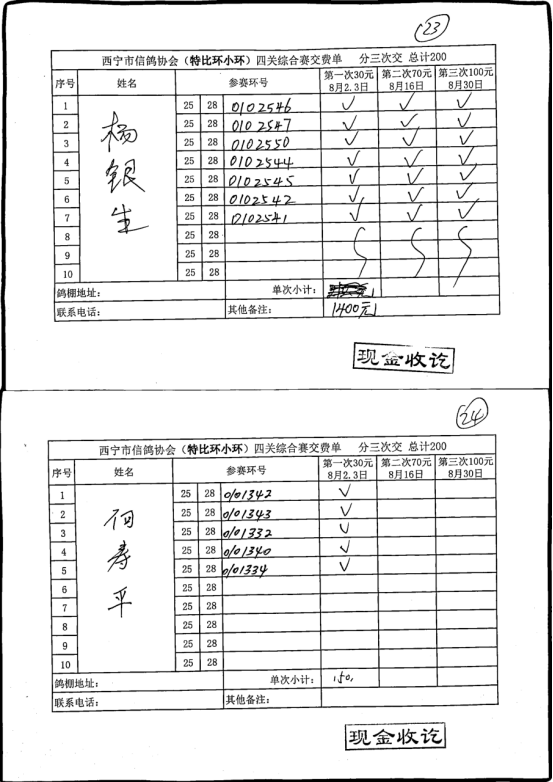 23
西宁市信鸽协会（特比环小环）四关综合赛交费单 分三次交 总计200
序号 姓名 参赛环号 第一次30元 8月2.3日 第二次70元 8月16日 第三次100元 8月30日
杨银生
1 25 28 0102546 ✓ ✓ ✓
2 25 28 0102547 ✓ ✓ ✓
3 25 28 0102550 ✓ ✓ ✓
4 25 28 0102544 ✓ ✓ ✓
5 25 28 0102545 ✓ ✓ ✓
6 25 28 0102542 ✓ ✓ ✓
7 25 28 0102541 ✓ ✓ ✓
8 25 28
9 25 28
10 25 28
鸽棚地址： 单次小计：
联系电话： 其他备注： 1400元
现金收讫
24
西宁市信鸽协会（特比环小环）四关综合赛交费单 分三次交 总计200
序号 姓名 参赛环号 第一次30元 8月2.3日 第二次70元 8月16日 第三次100元 8月30日
寿平
1 25 28 0101342 ✓
2 25 28 0101343 ✓
3 25 28 0101332 ✓
4 25 28 0101340 ✓
5 25 28 0101334 ✓
6 25 28
7 25 28
8 25 28
9 25 28
10 25 28
鸽棚地址： 单次小计： 150,
联系电话： 其他备注：
现金收讫